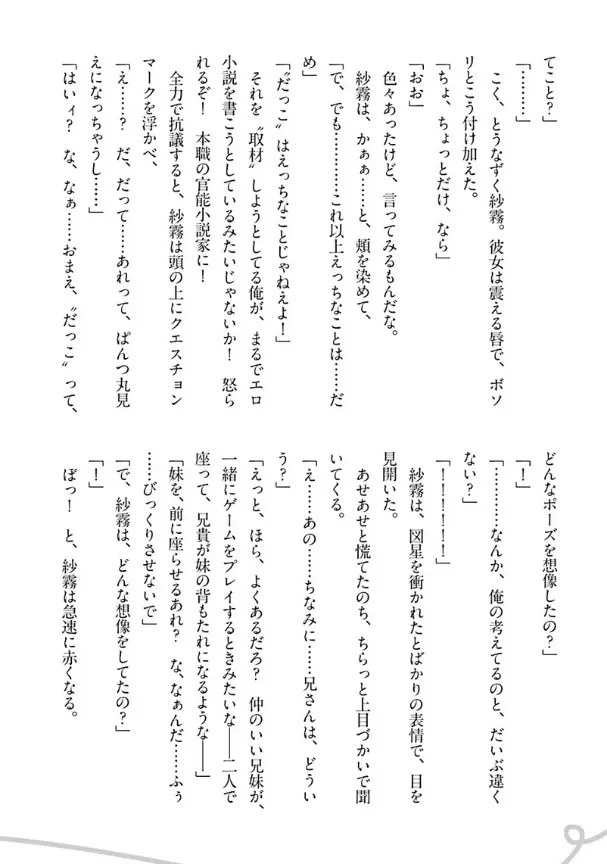 てこと？」
「………」
　こく、とうなずく紗霧。彼女は震える唇で、ボソ
リとこう付け加えた。
「ちょ、ちょっとだけ、なら」
「おお」
　色々あったけど、言ってみるもんだな。
　紗霧は、かぁぁ……と、頬を染めて、
「で、でも…………これ以上えっちなことは……だ
め」
「〝だっこ〟はえっちなことじゃねえよ！」
　それを〝取材〟しようとしてる俺が、まるでエロ
小説を書こうとしているみたいじゃないか！　怒ら
れるぞ！　本職の官能小説家に！
　全力で抗議すると、紗霧は頭の上にクエスチョン
マークを浮かべ、
「え……？　だ、だって……あれって、ぱんつ丸見
えになっちゃうし……」
「はいィ？　な、なぁ……おまえ、〝だっこ〟って、
どんなポーズを想像したの？」
「！」
「…………なんか、俺の考えてるのと、だいぶ違く
ない？」
「！！！！！！」
　紗霧は、図星を衝かれたとばかりの表情で、目を
見開いた。
　あせあせと慌てたのち、ちらっと上目づかいで聞
いてくる。
「え……あの……ちなみに……兄さんは、どうい
う？」
「えっと、ほら、よくあるだろ？　仲のいい兄妹が、
一緒にゲームをプレイするときみたいな――二人で
座って、兄貴が妹の背もたれになるような――」
「妹を、前に座らせるあれ？　な、なぁんだ……ふぅ
……びっくりさせないで」
「で、紗霧は、どんな想像をしてたの？」
「！」
　ぼっ！　と、紗霧は急速に赤くなる。